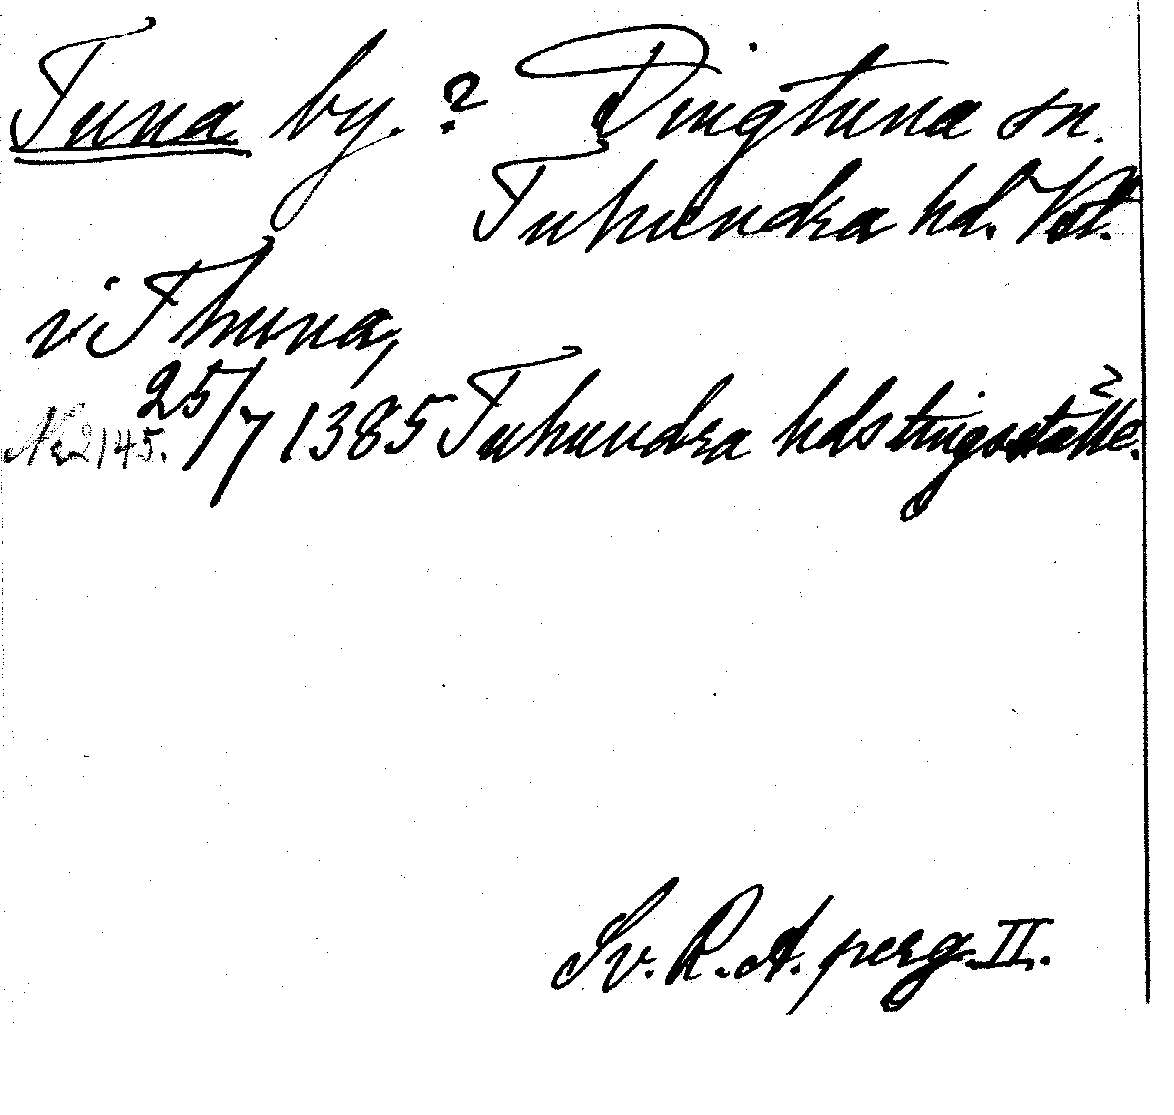 Tuna by. ? Dingtuna sn.
Tuhundra hd. Vstl.
i Thuna,
No 2145. 25/7 1385 Tuhundra hds tingsställe. ?
Sv. R. A. perg. II.